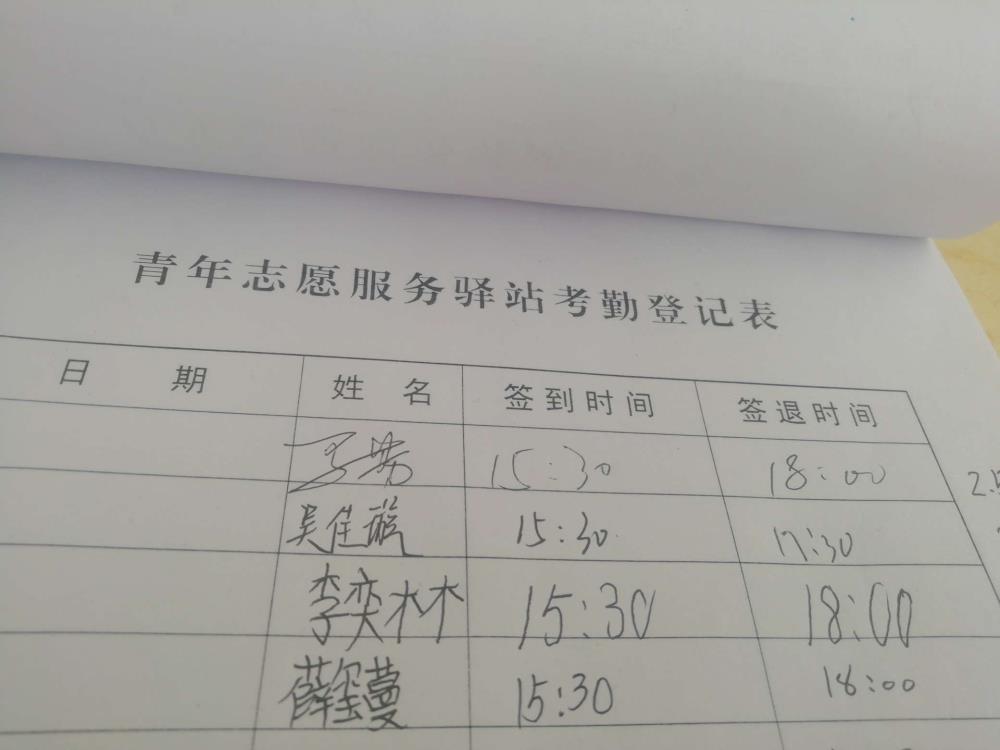 青年志愿服务驿站考勤登记表
日 期 姓 名 签到时间 签退时间
15:30 18:00
吴佳璇 15:30 17:30
李奕林 15:30 18:00
薛玺蔓 15:30 18:00